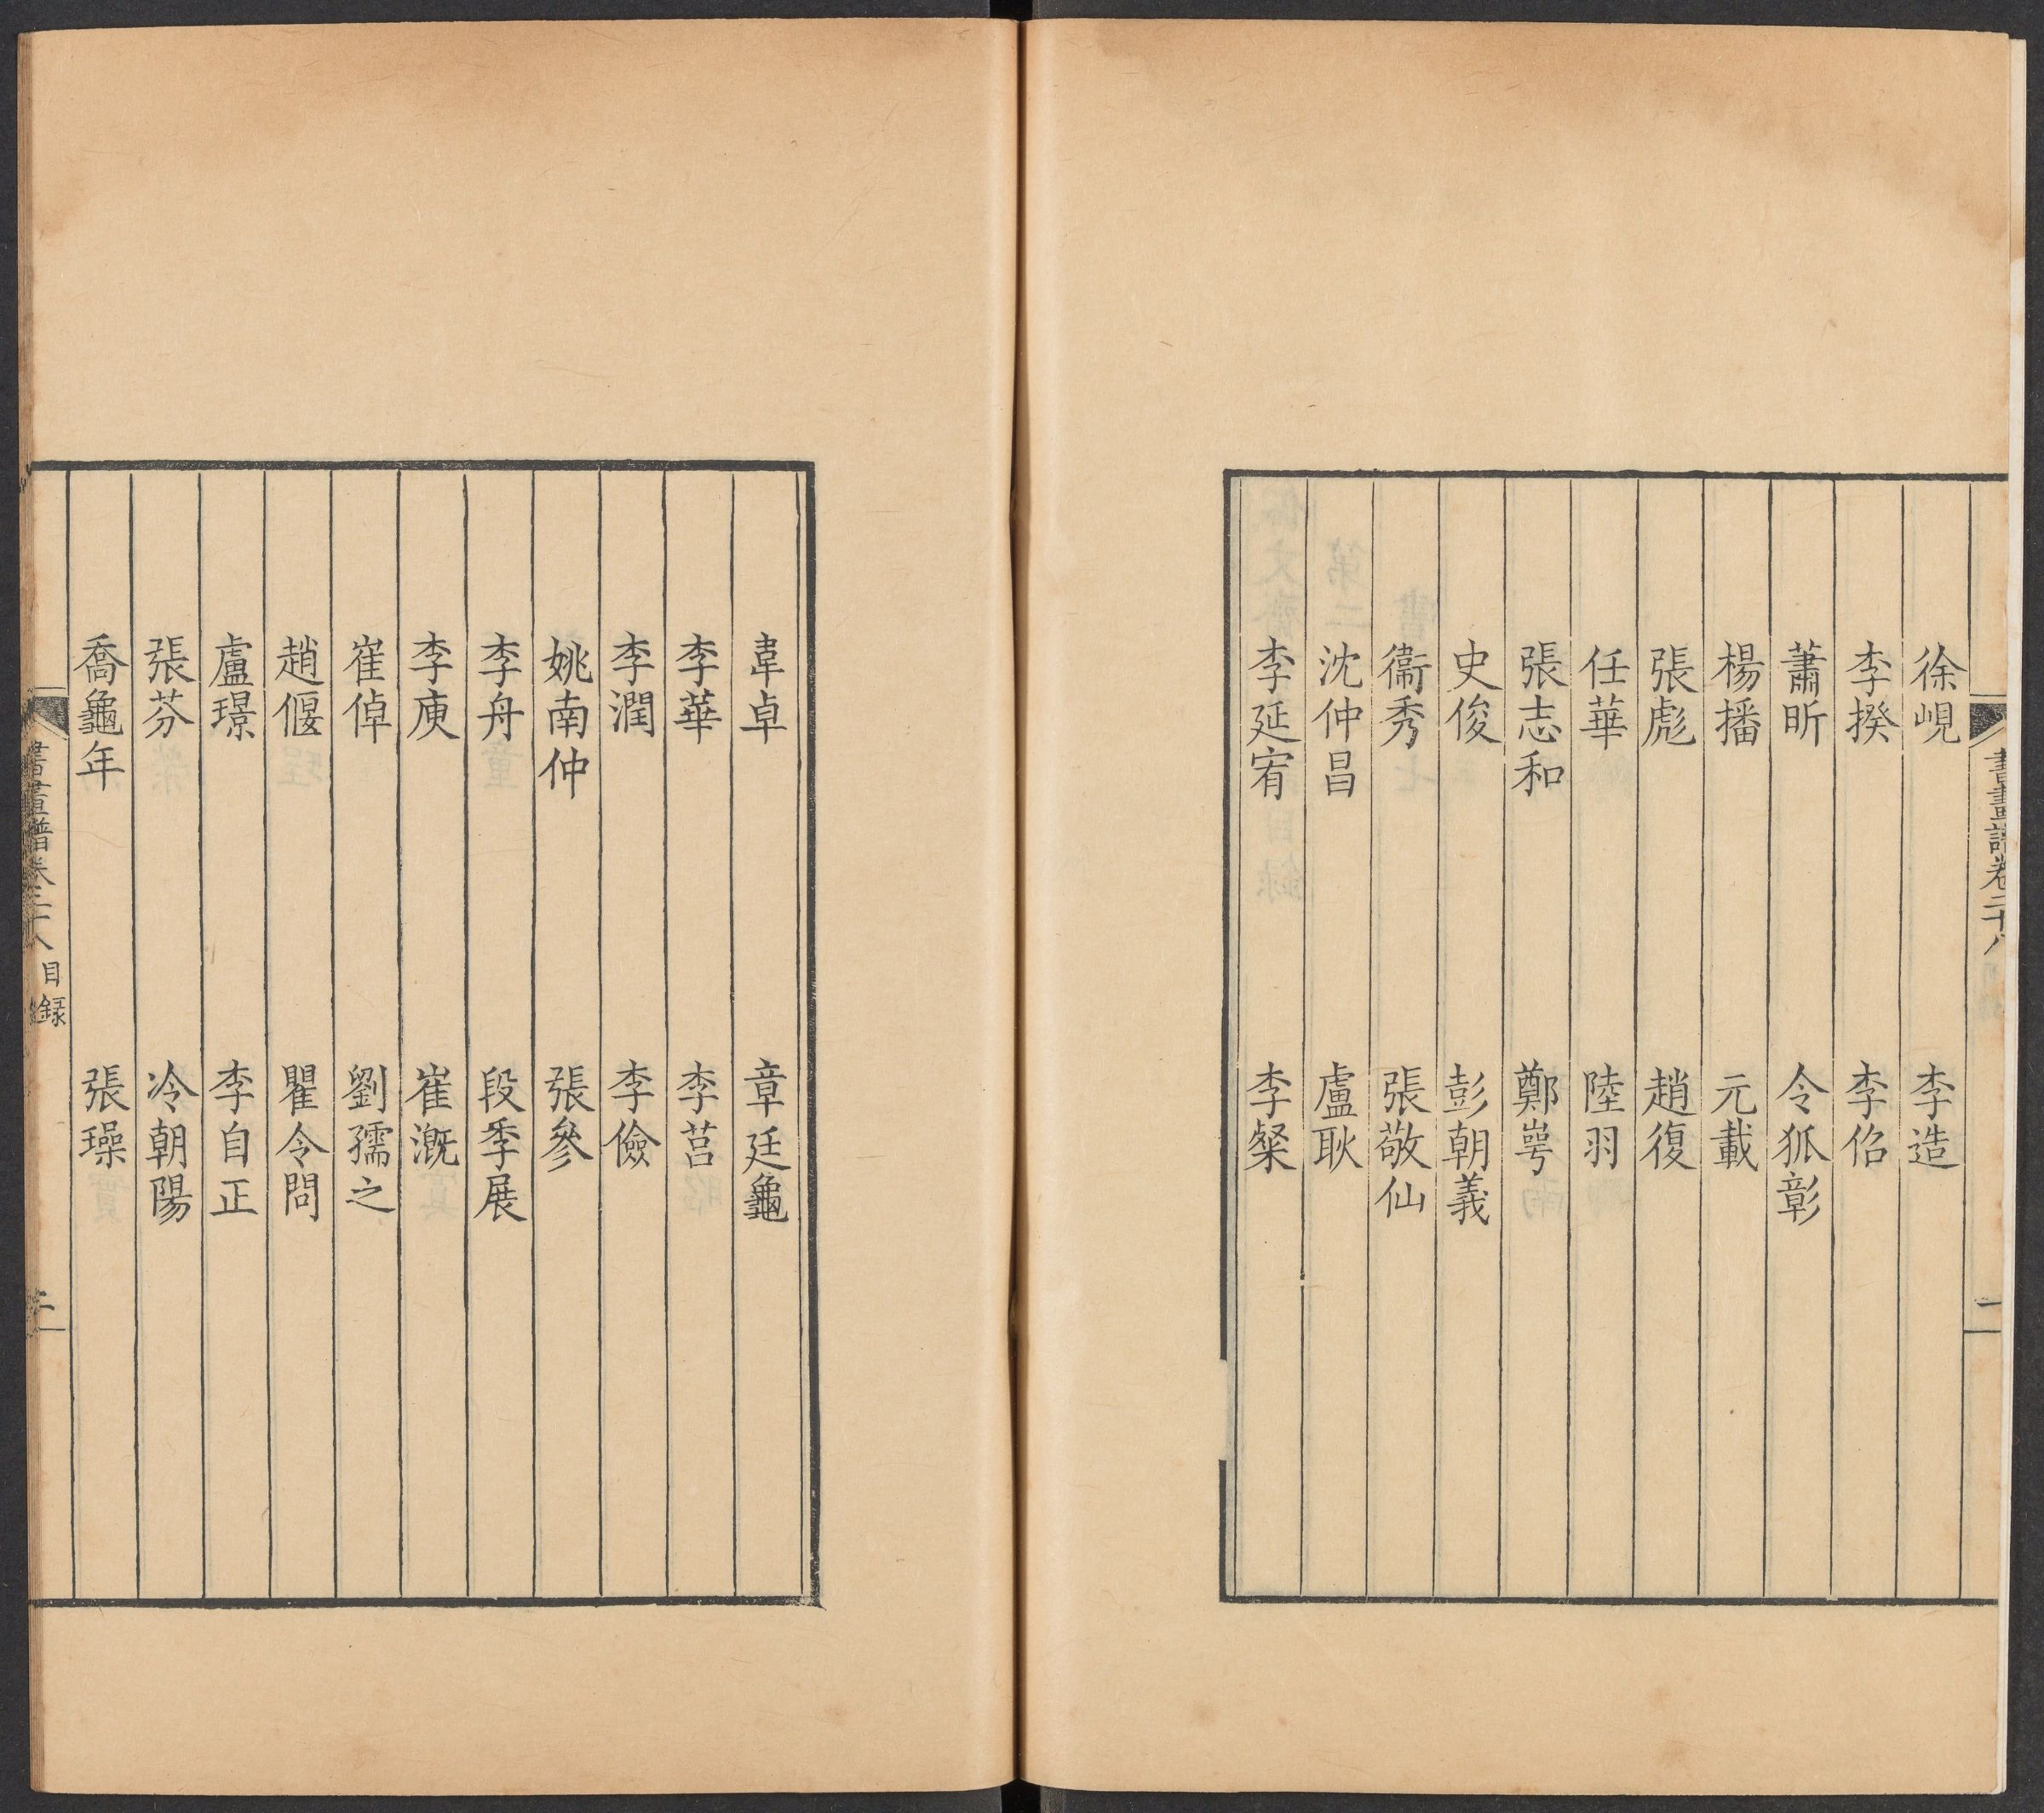 書畫譜卷二十八
一
徐峴 李造
李揆 李佋
蕭昕 令狐彰
楊播 元載
張彪 趙復
任華 陸羽
張志和 鄭㟧
史俊 彭朝義
衞秀 張敬仙
沈仲昌 盧耿
李延宥 李粲
韋卓 章廷龜
李華 李莒
李潤 李儉
姚南仲 張參
李舟 段季展
李庾 崔漑
崔倬 劉孺之
趙偃 瞿令問
盧璟 李自正
張芬 冷朝陽
喬龜年 張璪
書畫譜卷二十八 目錄
二